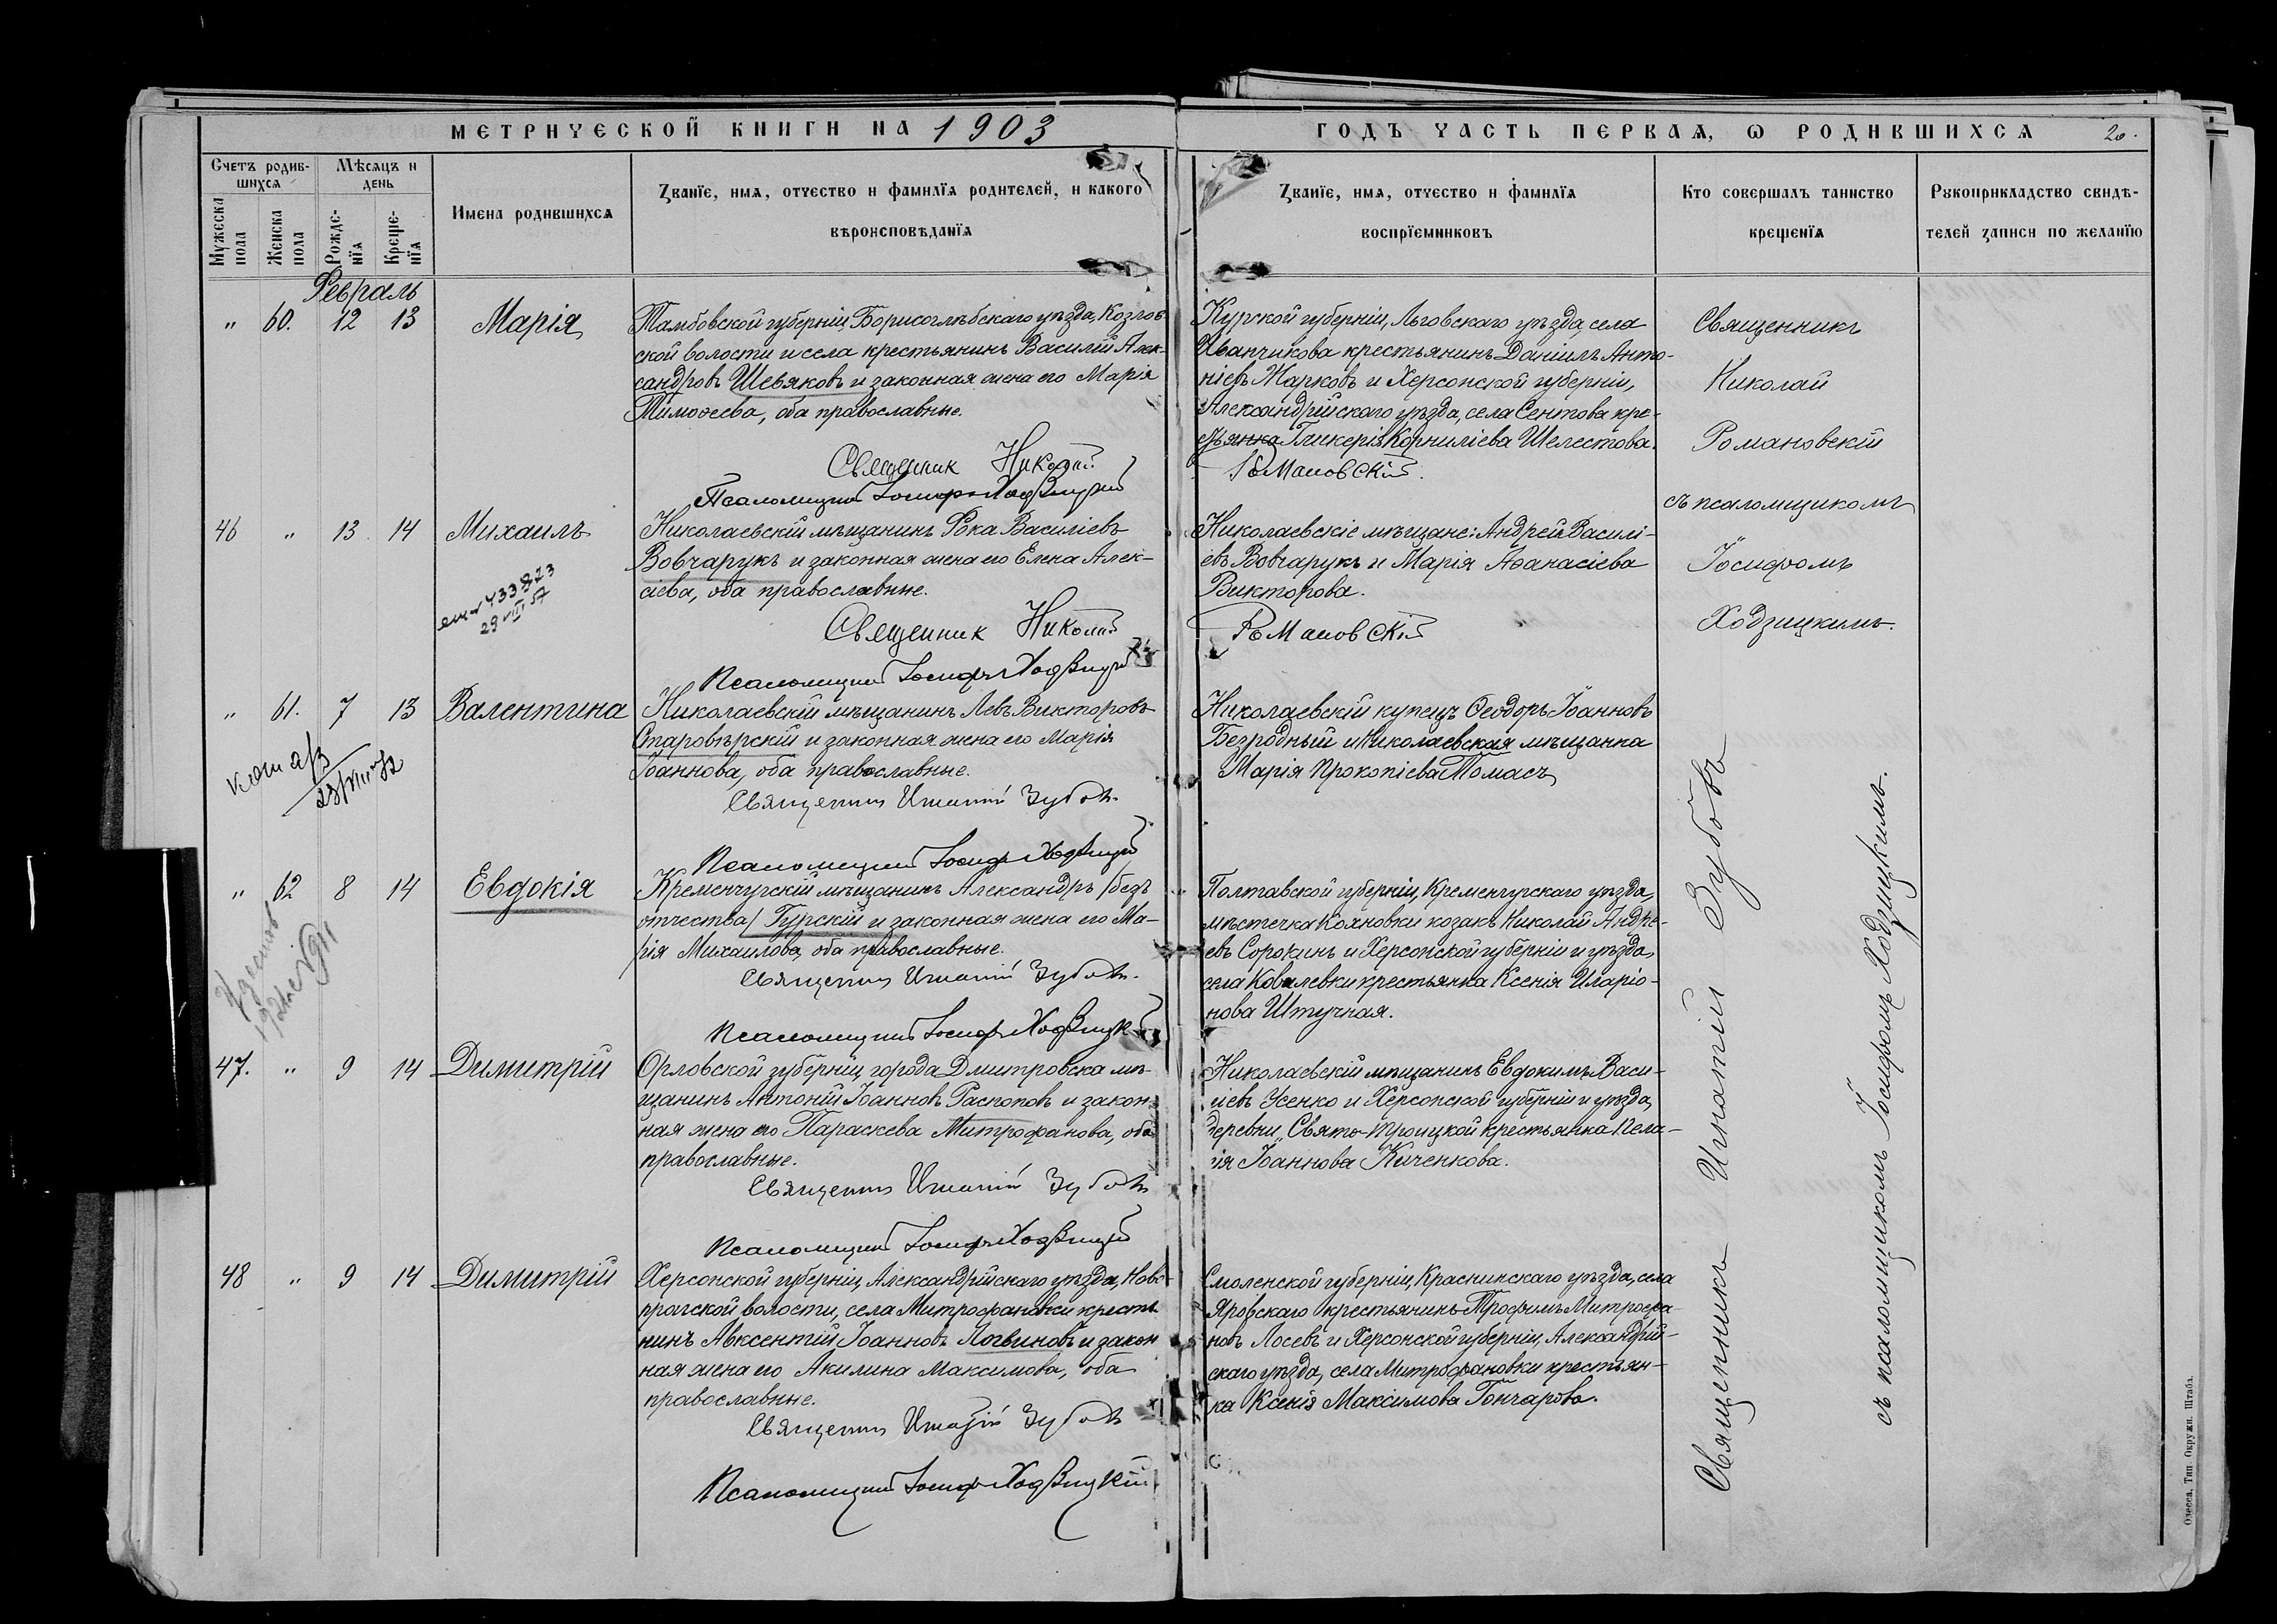 МЕТРИЧЕСКОЙ КНИГИ НА 1903
ГОДЪ ЧАСТЬ ПЕРВАЯ, Ѡ РОДИВШИХСЯ 20.
Счетъ родив-
шихся
Мѣсяцъ и
день
Мужеска
пола
Женска
пола
Рожде-
нїя
Креще-
нїя
Имена родившихся
Званїе, имя, отчество и фамилїя родителей, и какого
вѣроисповѣданїя
Званїе, имя, отчество и фамилїя
воспрїемниковъ
Кто совершалъ таинство
крещенїя
Рукоприкладство свидѣ-
телей записи по желанїю
Февраль
" 60. 12 13 Марія
Тамбовской губерніи, Борисоглѣбскаго уѣзда, Козлов-
ской волости и села крестьянинъ Василій Алек-
сандровъ Шевяковъ и законная жена его Марія
Тимоѳеева, оба православные.
Священник Николай
Романовскій.
Псаломщикъ Іосифъ Ходзицкій
Курской губерніи, Льговскаго уѣзда, села
Иванчикова крестьянинъ Даніилъ Анто-
ніевъ Жарковъ и Херсонской губерніи,
Александрійскаго уѣзда, села Сентова кре-
стьянка Гликерія Корниліева Шелестова.
Священникъ
Николай
Романовскій
съ псаломщикомъ
Іосифомъ
Ходзицкимъ.
46 " 13 14 Михаилъ
433823
29 VII 57
Николаевскій мѣщанинъ Ѳока Василіевъ
Вовчарукъ и законная жена его Елена Алек-
сіева, оба православные.
Священник Николай
Романовскій
Псаломщикъ Іосифъ Ходзицкій
Николаевскіе мѣщане: Андрей Василі-
евъ Вовчарукъ и Марія Аѳанасіева
Викторова.
" 61. 7 13 Валентина
Николаевскій мѣщанинъ Левъ Викторовъ
Старовѣрскій и законная жена его Марія
Іоаннова, оба православные.
Священникъ Игнатій Зубовъ.
Псаломщикъ Іосифъ Ходзицкій
Николаевскій купецъ Ѳеодоръ Іоанновъ
Безродный и Николаевская мѣщанка
Марія Прокопіева Томасъ
" 62 8 14 Евдокія
Кременчугскій мѣщанинъ Александръ /безъ
отчества/ Гурскій и законная жена его Ма-
рія Михаилова, оба православные.
Священникъ Игнатій Зубовъ.
Псаломщикъ Іосифъ Ходзицкій
Полтавской губерніи, Кременчугскаго уѣзда,
мѣстечка Кохновки козакъ Николай Андре-
евъ Сорокинъ и Херсонской губерніи и уѣзда,
села Ковалевки крестьянка Ксенія Иларіо-
нова Штучная.
47. " 9 14 Димитрій
Орловской губерніи, города Дмитровска мѣ-
щанинъ Антоній Іоанновъ Распоповъ и закон-
ная жена его Параскева Митрофанова, оба
православные.
Священникъ Игнатій Зубовъ
Псаломщикъ Іосифъ Ходзицкій
Николаевскій мѣщанинъ Евдокимъ Васи-
ліевъ Усенко и Херсонской губерніи и уѣзда,
деревни Свято-Троицкой крестьянка Пела-
гія Іоаннова Киченкова.
48 " 9 14 Димитрій
Херсонской губерніи, Александрійскаго уѣзда, Ново-
пражской волости, села Митрофановки крестья-
нинъ Авксентій Іоанновъ Логвиновъ и закон-
ная жена его Акилина Максимова, оба
православные.
Священникъ Игнатій Зубовъ
Псаломщикъ Іосифъ Ходзицкій
Смоленской губерніи, Краснинскаго уѣзда, села
Яровскаго крестьянинъ Трофимъ Митрофа-
новъ Лосевъ и Херсонской губерніи, Александрій-
скаго уѣзда, села Митрофановки крестьян-
ка Ксенія Максимова Гончарова.
Священникъ Игнатій Зубовъ
съ псаломщикомъ Іосифомъ Ходзицкимъ.
Одесса, Тип. Окружн. Штаба.